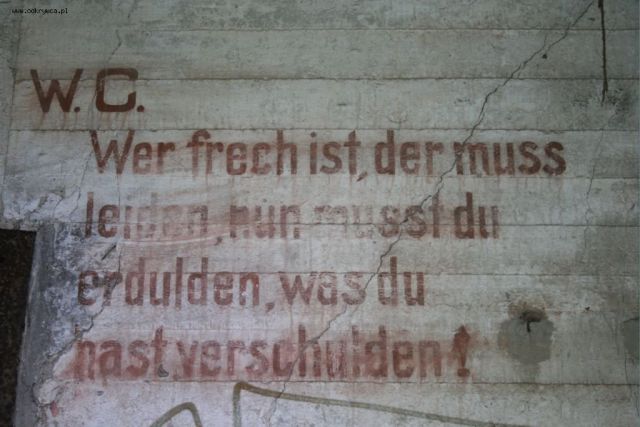 www.odkrywca.pl
W.C.
Wer frech ist, der muss
leiden, nun musst du
erdulden, was du
hast verschulden!